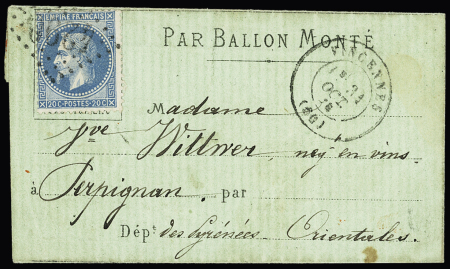 EMPIRE FRANÇAIS
20C · POSTES · 20C
PAR BALLON MONTÉ
VINCENNES
OCT
(60)
Madame
Vve Wittwer, neg en vins
à Perpignan par
Dépt des Pyrénées Orientales.